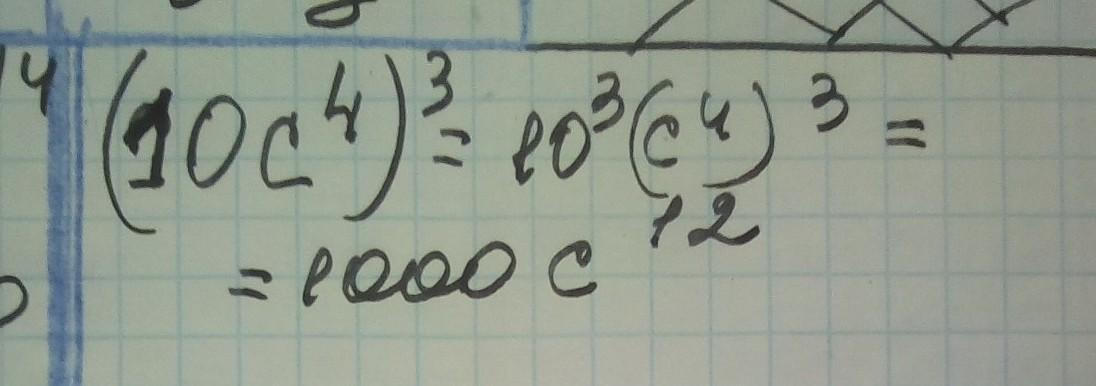 (10c⁴)³ = 10³(c⁴)³ =
= 1000c¹²